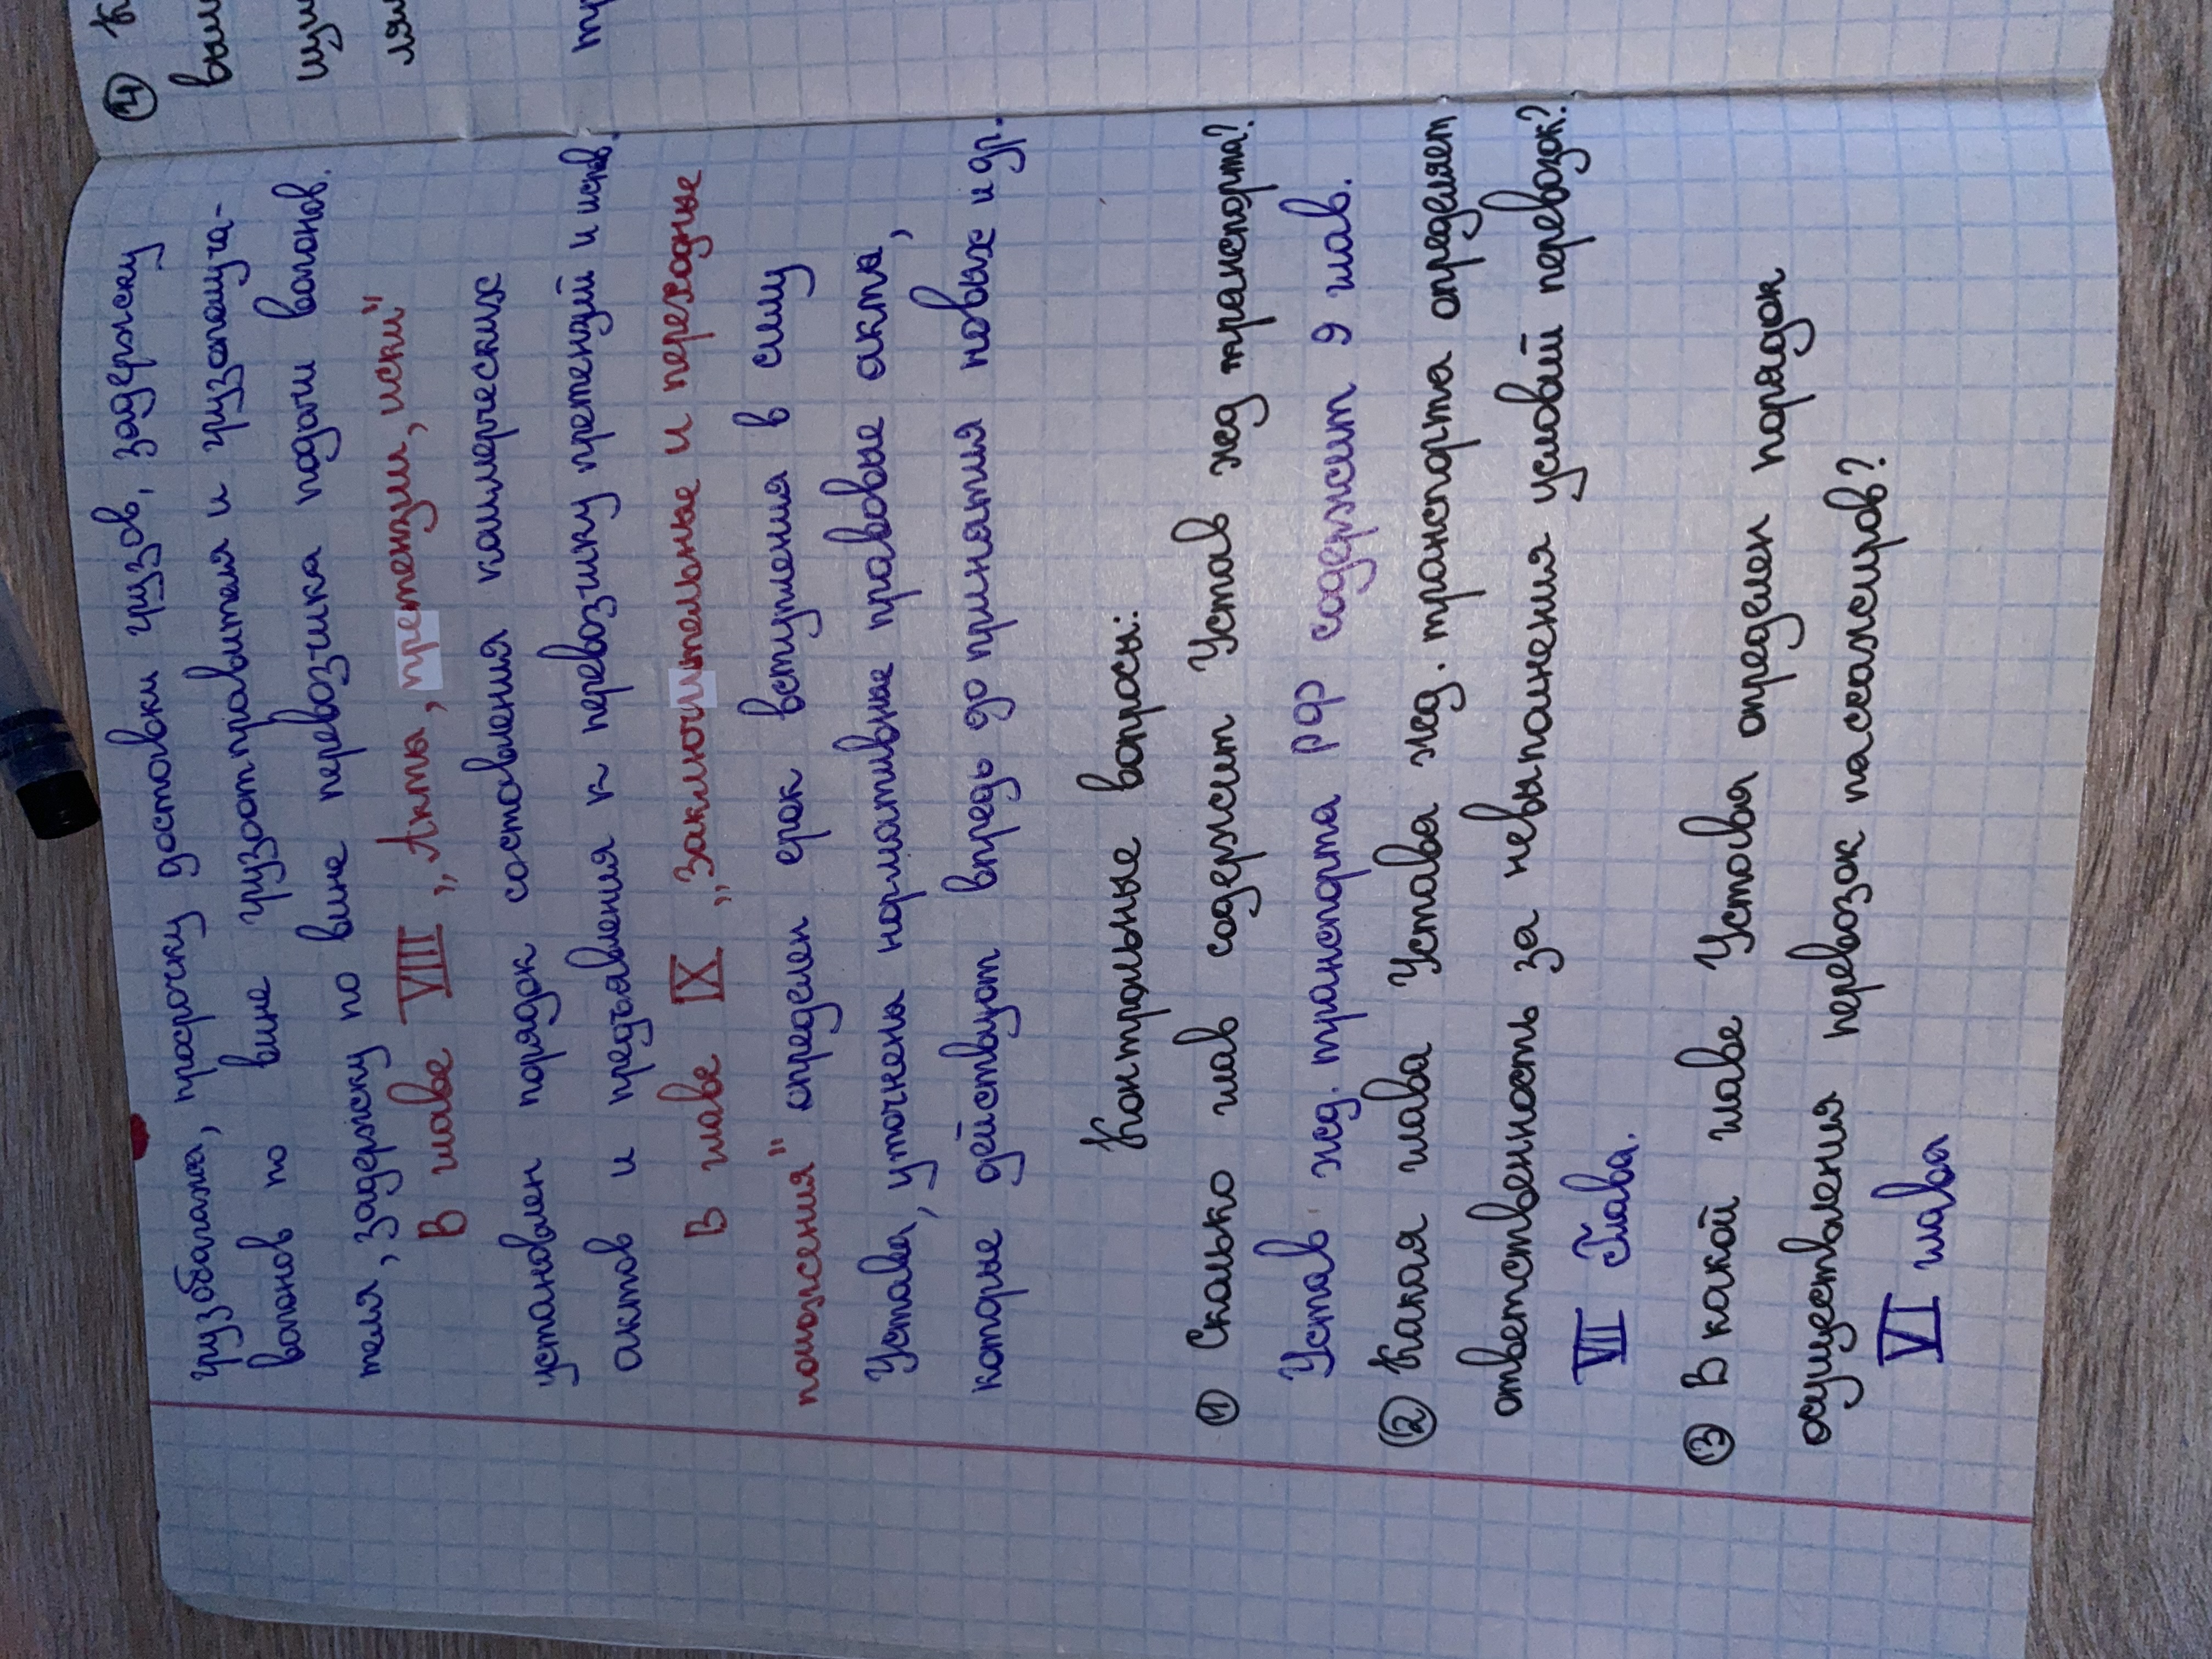 грузбагажа, просрочку доставки грузов, задержку
вагонов по вине грузоотправителя и грузополуча-
теля, задержку по вине перевозчика подачи вагонов.
В главе VIII „Акты, претензии, иски"
установлен порядок составления коммерческих
актов и предъявления к перевозчику претензий и исков.
В главе IX „Заключительные и переходные
положения" определен срок вступления в силу
Устава, уточнены нормативные правовые акты,
которые действуют впредь до принятия новых и др.
Контрольные вопросы:
① Сколько глав содержит Устав жд транспорта?
Устав жд. транспорта РФ содержит 9 глав.
② Какая глава Устава жд. транспорта определяет
ответственность за невыполнения условий перевозок?
VII Глава.
③ В какой главе Устава определен порядок
осуществления перевозок пассажиров?
VI глава
④